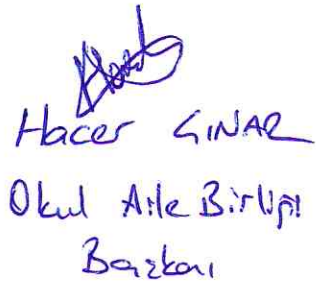 Hacer ÇINAR
Okul Aile Birliği
Başkanı